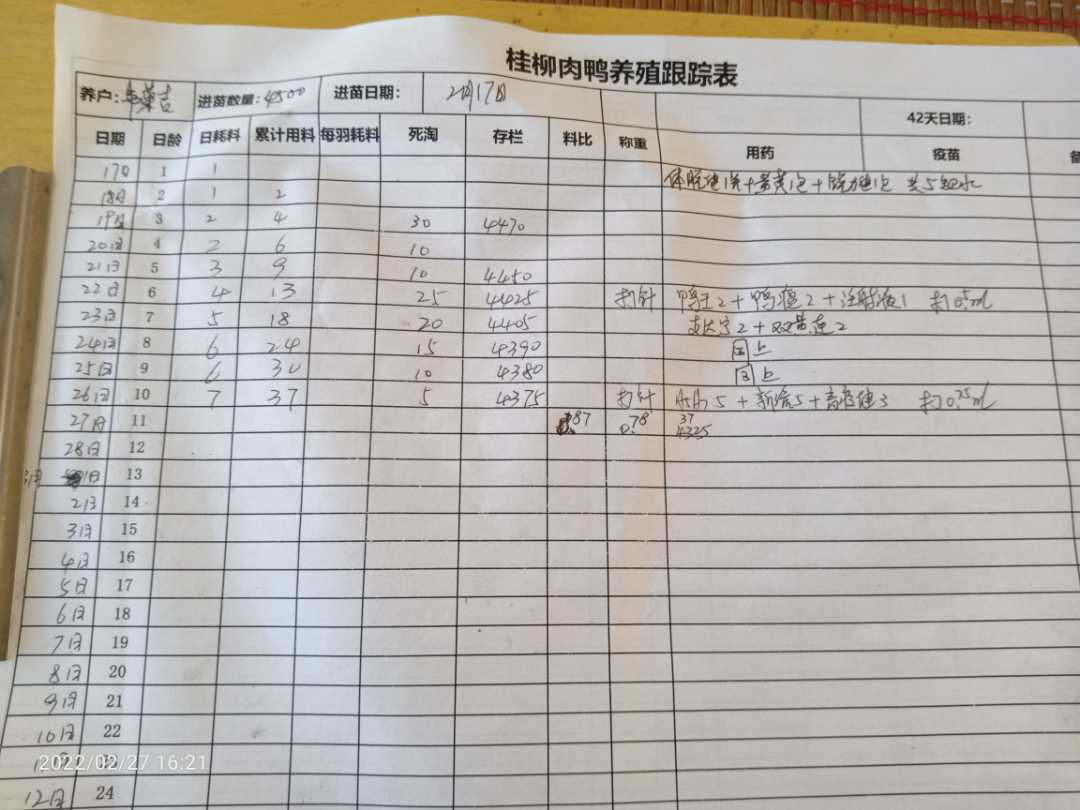 桂柳肉鸭养殖跟踪表
养户: 荣吉 进苗数量: 4500 进苗日期: 2月17日 42天日期:
日期 日龄 日耗料 累计用料 每羽耗料 死淘 存栏 料比 称重 用药 疫苗 备
17日 1 1
18日 2 1 2
19日 3 2 4 30 4470
20日 4 2 6 10
21日 5 3 9 10 4450
22日 6 4 13 25 4425 打针 鸭王2+鸭瘟2+注射液1 打0.5ml
23日 7 5 18 20 4405 2+双黄连2
24日 8 6 24 15 4390 同上
25日 9 6 30 10 4380 同上
26日 10 7 37 5 4375 打针 5+新流5+ 3 打0.75ml
27日 11 87 0.78 37 4325
28日 12
3月 1日 13
2日 14
3日 15
4日 16
5日 17
6日 18
7日 19
8日 20
9日 21
10日 22
2022/02/27 16:21
12日 24